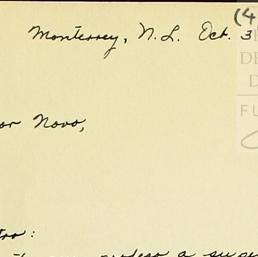 (4
Monterrey, N.L. Oct. 3
DE
D
FU
or Novo,
tro:
a suge